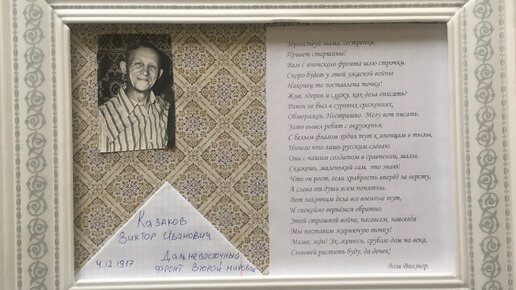 Здравствуй мама, сестренки,
Привет старшины!
Вам с японского фронта шлю строчки,
Скоро будет у этой ужасной войны
Наконец-то поставлена точка!
Жив, здоров и служу, как дела описать?
Ранен не был в суровых сраженьях,
Обморожен. Нестрашно. Могу вот писать.
Зато вывел ребят с окруженья.
С белым флагом ходил тут к японцам в тылы,
Ничего что лишь русским словаю.
Они с нашим солдатом в сравнении, малы.
Скажешь, маленький сам, это знаю!
Что он рост, если храбрость вперёд за версту,
А слова от души всем понятны.
Вот закончим дела все военные тут,
И спокойно вернёмся обратно.
Этой страшной войне, насовсем, навсегда
Мы поставим жирнющую точку!
Мама, жди! Эх, женюсь, срублю дом на века,
Сыновей растить буду, да дочек!
Ваш Виктор.
Казаков
Виктор Иванович
4.12.1917
Дальневосточный
фронт Второй мировой